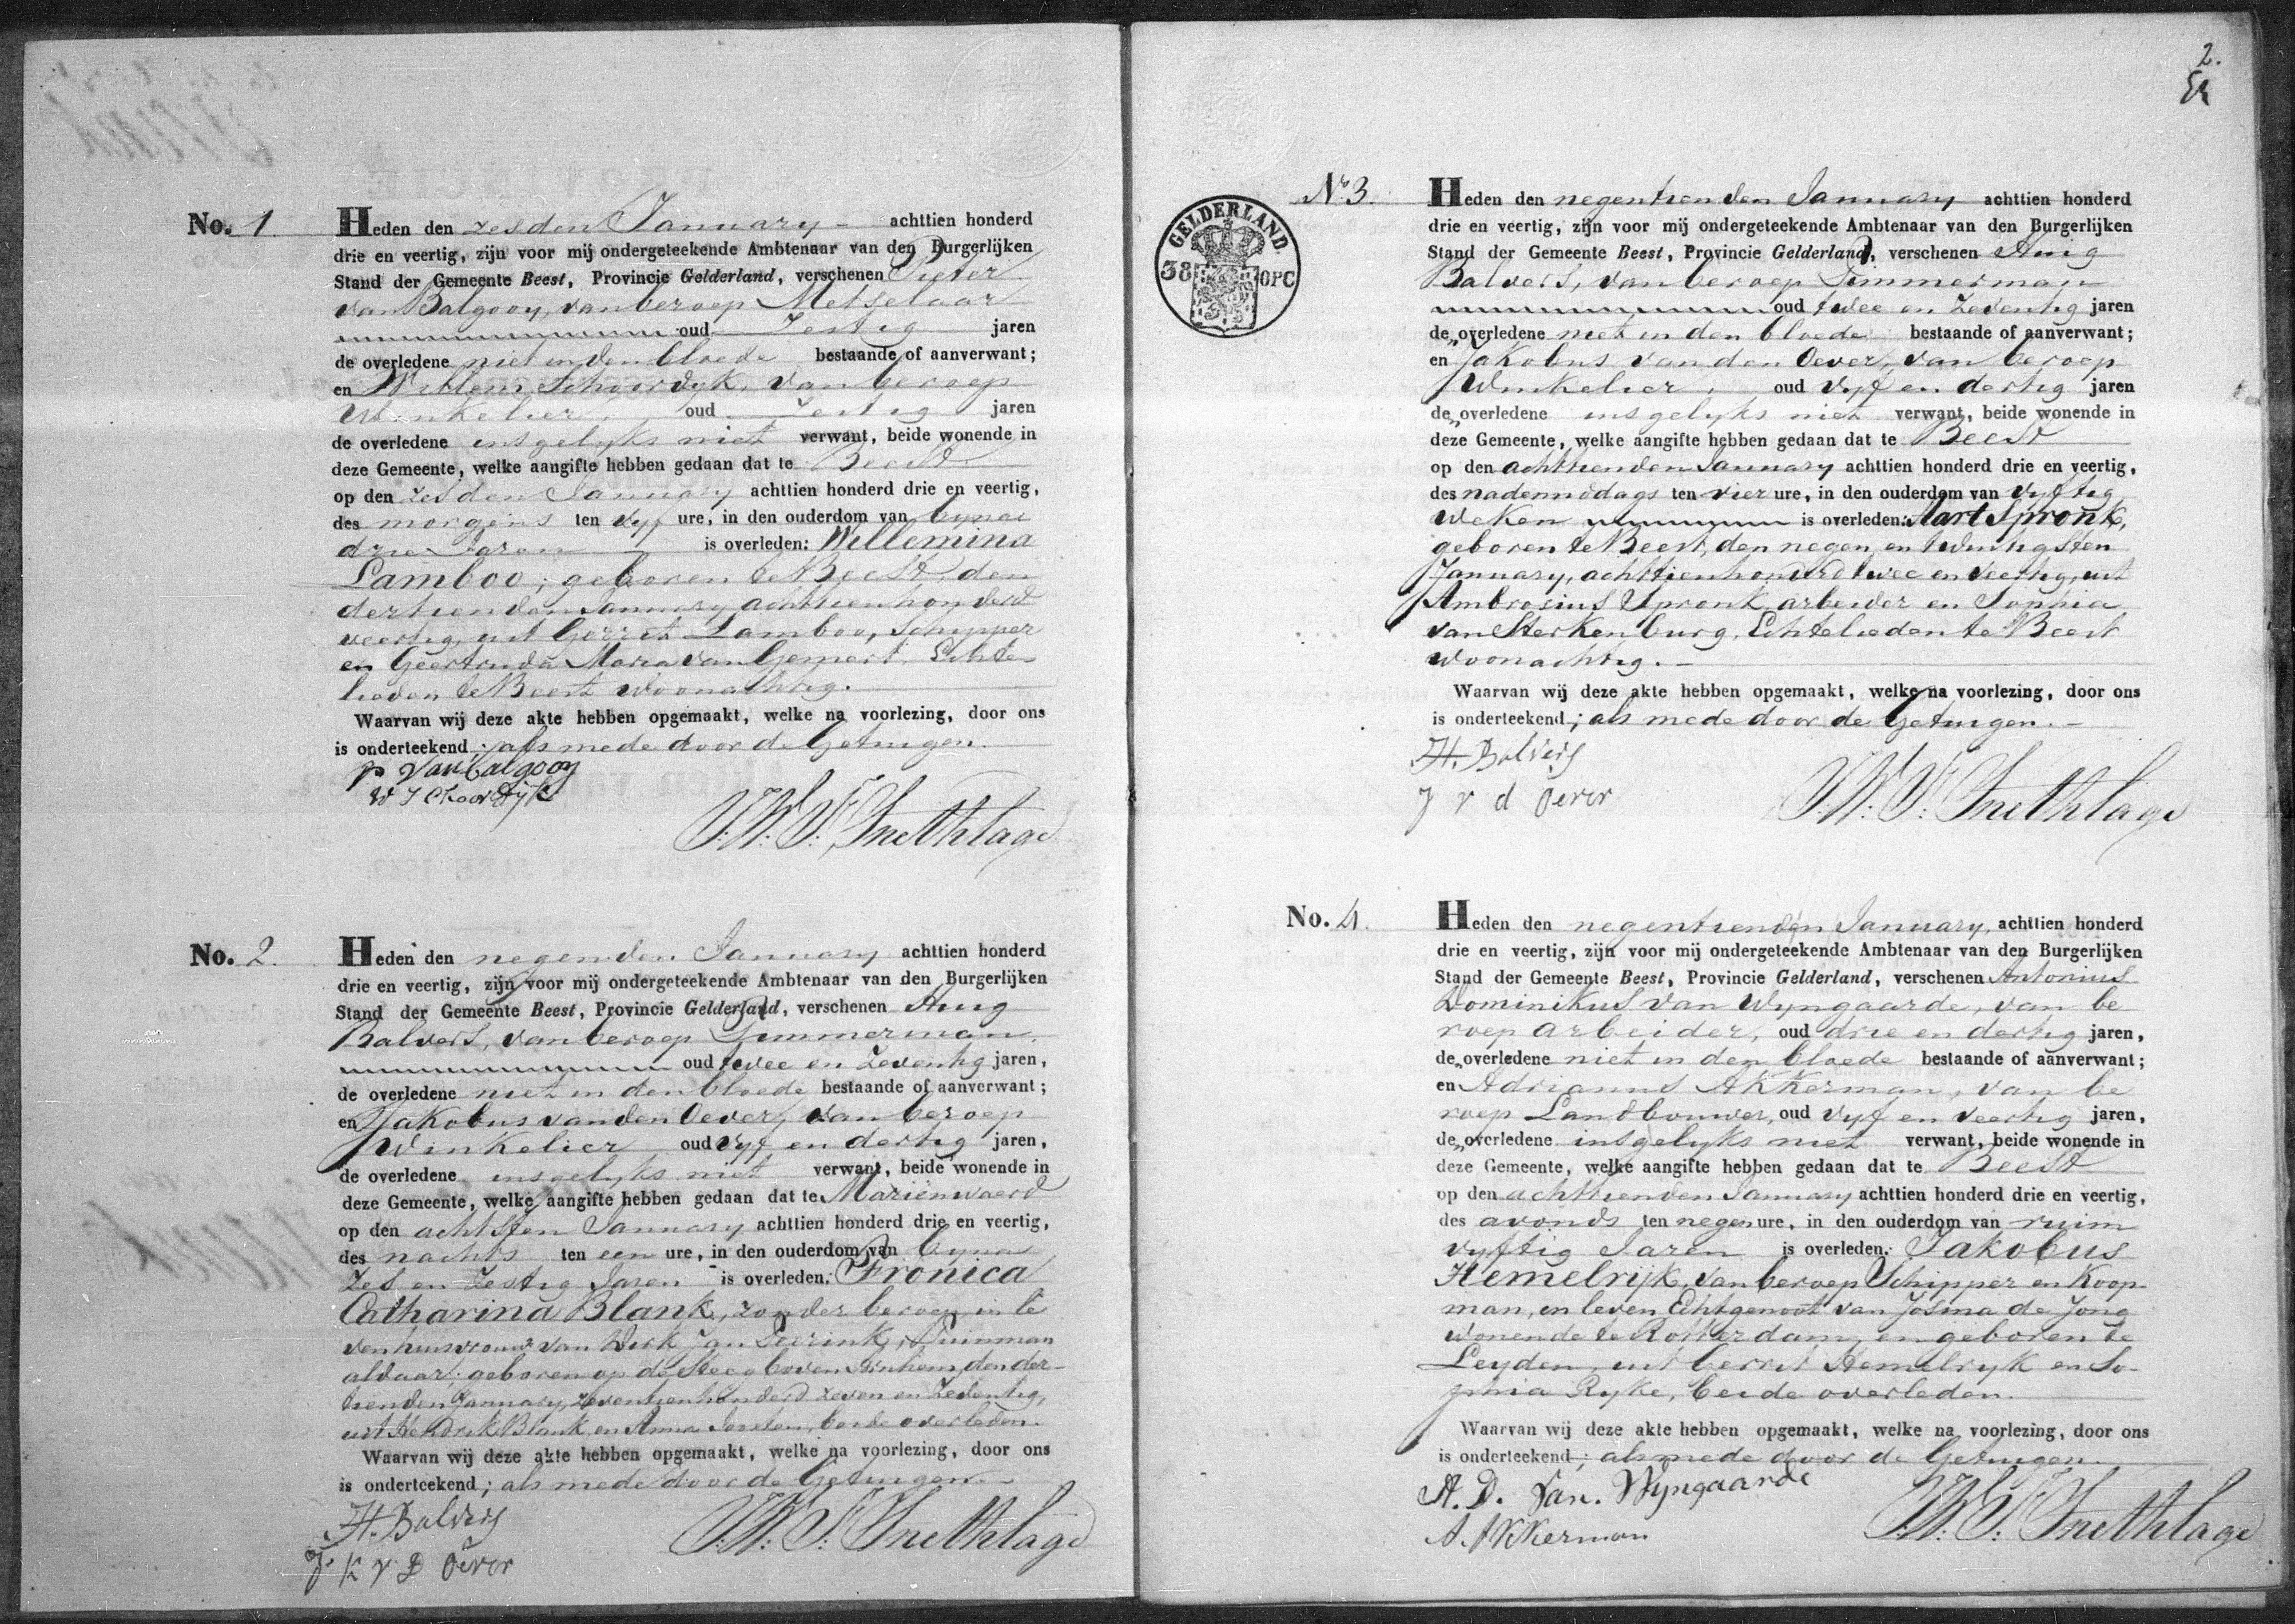 No. 1
Heden den zesden January achttien honderd
drie en veertig, zijn voor mij ondergeteekende Ambtenaar van den Burgerlijken
Stand der Gemeente Beest, Provincie Gelderland, verschenen Pieter
van Balgooy, van beroep Metselaar
oud Zestig jaren
de overledene niet in den bloede bestaande of aanverwant;
en Willem Schoordyk, van beroep
Winkelier, oud Zestig jaren
de overledene insgelyks niet verwant, beide wonende in
deze Gemeente, welke aangifte hebben gedaan dat te Beest
op den zesden January achttien honderd drie en veertig,
des morgens ten vyf ure, in den ouderdom van byna
drie Jaren is overleden: Willemina
Lamboo, geboren te Beest, den
dertienden January achttienhonderd
veertig, uit Gerrit Lamboo, Schipper
en Geertruda Maria van Gemert, Echte
lieden te Beest woonachtig.
Waarvan wij deze akte hebben opgemaakt, welke na voorlezing, door ons
is onderteekend; als mede door de Getuigen.
P van balgooy
W Schoordyk
J.W.S. Snethlage
No. 2.
Heden den negenden January achttien honderd
drie en veertig, zijn voor mij ondergeteekende Ambtenaar van den Burgerlijken
Stand der Gemeente Beest, Provincie Gelderland, verschenen Huig
Balvers, van beroep Timmerman,
oud twee en zeventig jaren,
de overledene niet in den bloede bestaande of aanverwant;
en Jakobus van den Oever, van beroep
Winkelier oud vyf en dertig jaren,
de overledene insgelyks niet verwant, beide wonende in
deze Gemeente, welke aangifte hebben gedaan dat te Mariënwaerd
op den achtsten January achttien honderd drie en veertig,
des nachts ten een ure, in den ouderdom van byna
Zes en Zestig Jaren is overleden: Fronica
Catharina Blank, zonder beroep, in le
ven huisvrouw van Derk Jan Teerink, Tuinman
aldaar; geboren op de Steeg boven Arnhem, den der-
tienden January, zeventienhonderd zeven en Zeventig,
uit Hendrik Blank en Anna, beide overleden.
Waarvan wij deze akte hebben opgemaakt, welke na voorlezing, door ons
is onderteekend; als mede door de Getuigen.
H. Balvers
J. K v D Oever
J.W.S. Snethlage
2.
GELDERLAND
38 OPC
No 3.
Heden den negentienden January achttien honderd
drie en veertig, zijn voor mij ondergeteekende Ambtenaar van den Burgerlijken
Stand der Gemeente Beest, Provincie Gelderland, verschenen Huig
Balvers, van beroep Timmerman
oud twee en Zeventig jaren
de overledene niet in den bloede bestaande of aanverwant;
en Jakobus van den Oever, van beroep
Winkelier, oud vyf en dertig jaren
de overledene insgelyks niet verwant, beide wonende in
deze Gemeente, welke aangifte hebben gedaan dat te Beest
op den achttienden January achttien honderd drie en veertig,
des nademiddags ten vier ure, in den ouderdom van vyftig
Weken is overleden: Aart Spronk,
geboren te Beest, den negen en twintigsten
January, achttienhonderd twee en veertig, uit
Ambrosius Spronk, arbeider en Sophia
van Sterkenburg, Echtelieden te Beest
woonachtig.
Waarvan wij deze akte hebben opgemaakt, welke na voorlezing, door ons
is onderteekend; als mede door de Getuigen.
H. Balvers
J v d Oever
J.W.S. Snethlage
No. 4.
Heden den negentienden January, achttien honderd
drie en veertig, zijn voor mij ondergeteekende Ambtenaar van den Burgerlijken
Stand der Gemeente Beest, Provincie Gelderland, verschenen Antonius
Dominikus van Wyngaarde, van be
roep arbeider, oud drie en dertig jaren,
de overledene niet in den bloede bestaande of aanverwant;
en Adrianus Akkerman, van be
roep Landbouwer, oud vyf en veertig jaren,
de overledene insgelyks niet verwant, beide wonende in
deze Gemeente, welke aangifte hebben gedaan dat te Beest
op den achttienden January achttien honderd drie en veertig,
des avonds ten negen ure, in den ouderdom van ruim
vyftig Jaren is overleden: Jakobus
Hemelrijk, van beroep Schipper en Koop
man, in leven Echtgenoot van Josina de Jong
wonende te Rotterdam, en geboren te
Leyden, uit Gerrit Hemelryk en So
phia Ryke, beide overleden.
Waarvan wij deze akte hebben opgemaakt, welke na voorlezing, door ons
is onderteekend; als mede door de Getuigen.
A. D. Van. Wyngaarde
A. Akkerman
J.W.S. Snethlage